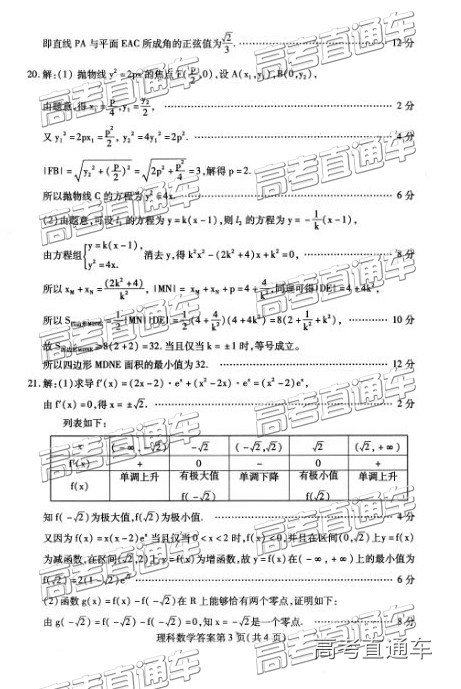 即直线 PA 与平面 EAC 所成角的正弦值为√2/3. …… 12 分
20.解:(1) 抛物线 y²=2px 的焦点 F(p/2,0),设 A(x₁,y₁),B(0,y₂),
由题意,得 x₁=p/4,y₁=y₂/2, …… 2 分
又 y₁²=2px₁=p²/2, y₂²=4y₁²=2p². …… 4 分
|FB|=√(y₂²+(p/2)²)=√(2p²+p²/4)=3,解得 p=2.
所以抛物线 C 的方程为 y²=4x. …… 6 分
(2)由题意,可设 l₁ 的方程为 y=k(x-1),则 l₂ 的方程为 y=-1/k(x-1),
由方程组{y=k(x-1), y²=4x. 消去 y,得 k²x²-(2k²+4)x+k²=0, …… 8 分
所以 x_M+x_N=(2k²+4)/k², |MN|=x_M+x_N+p=4+4/k²,同理可得|DE|=4+4k²,
所以 S四边形MDNE=1/2|MN||DE|=1/2(4+4/k²)(4+4k²)=8(2+1/k²+k²), …… 10 分
故 S四边形MDNE≥8(2+2)=32.当且仅当 k=±1 时,等号成立。
所以四边形 MDNE 面积的最小值为 32. …… 12 分
21.解:(1)求导 f'(x)=(2x-2)·eˣ+(x²-2x)·eˣ=(x²-2)eˣ,
由 f'(x)=0,得 x=±√2. …… 2 分
列表如下:
x (-∞,-√2) -√2 (-√2,√2) √2 (√2,+∞)
f'(x) + 0 - 0 +
f(x) 单调上升 有极大值 f(-√2) 单调下降 有极小值 f(√2) 单调上升
知 f(-√2)为极大值,f(√2)为极小值. …… 4 分
又因为 f(x)=x(x-2)eˣ 当且仅当 0<x<2 时,f(x)<0,并且在区间(0,√2)上 y=f(x)
为减函数,在区间(√2,2)上 y=f(x)为增函数,故 y=f(x)在(-∞,+∞)上的最小值为
f(√2)=2(1-√2)e^√2 …… 6 分
(2)函数 g(x)=f(x)-f(-√2)在 R 上能够恰有两个零点,证明如下:
由 g(-√2)=f(-√2)-f(-√2)=0,知 x=-√2是一个零点. …… 8 分
理科数学答案第 3 页(共 4 页)
高考直通车